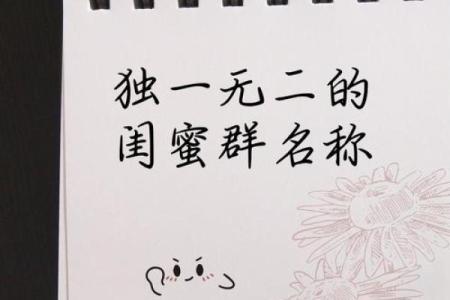 独一无二的
闺蜜群名称